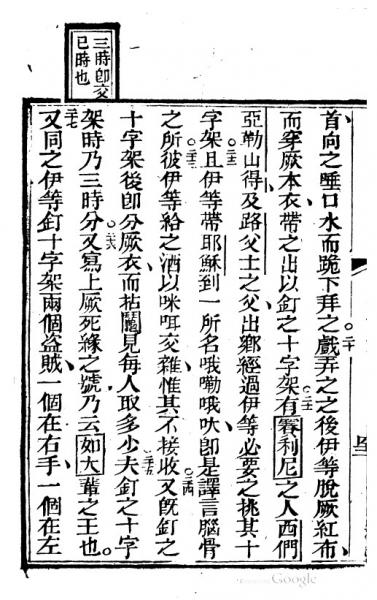 三時即交
巳時也
首向之唾口水而跪下拜之。二十戲弄之之後伊等脫厥紅布
而穿厥本衣帶之出以釘之十字架二一有賽利尼之人西們
亞勒山得及路父士之父出鄉經過伊等必要之挑其十
字架二二且伊等帶耶穌到一所名哦嘞哦即是譯言腦骨
之所二三彼伊等給之酒以咪咡交雜惟其不接收二四又旣釘之
十字架後即分厥衣而拈鬮見每人取多少二五夫釘之十字
架時乃三時分二六又寫上厥死緣之號乃云如大輩之王也。
二七又同之伊等釘十字架兩個盜賊一個在右手一個在左
Google